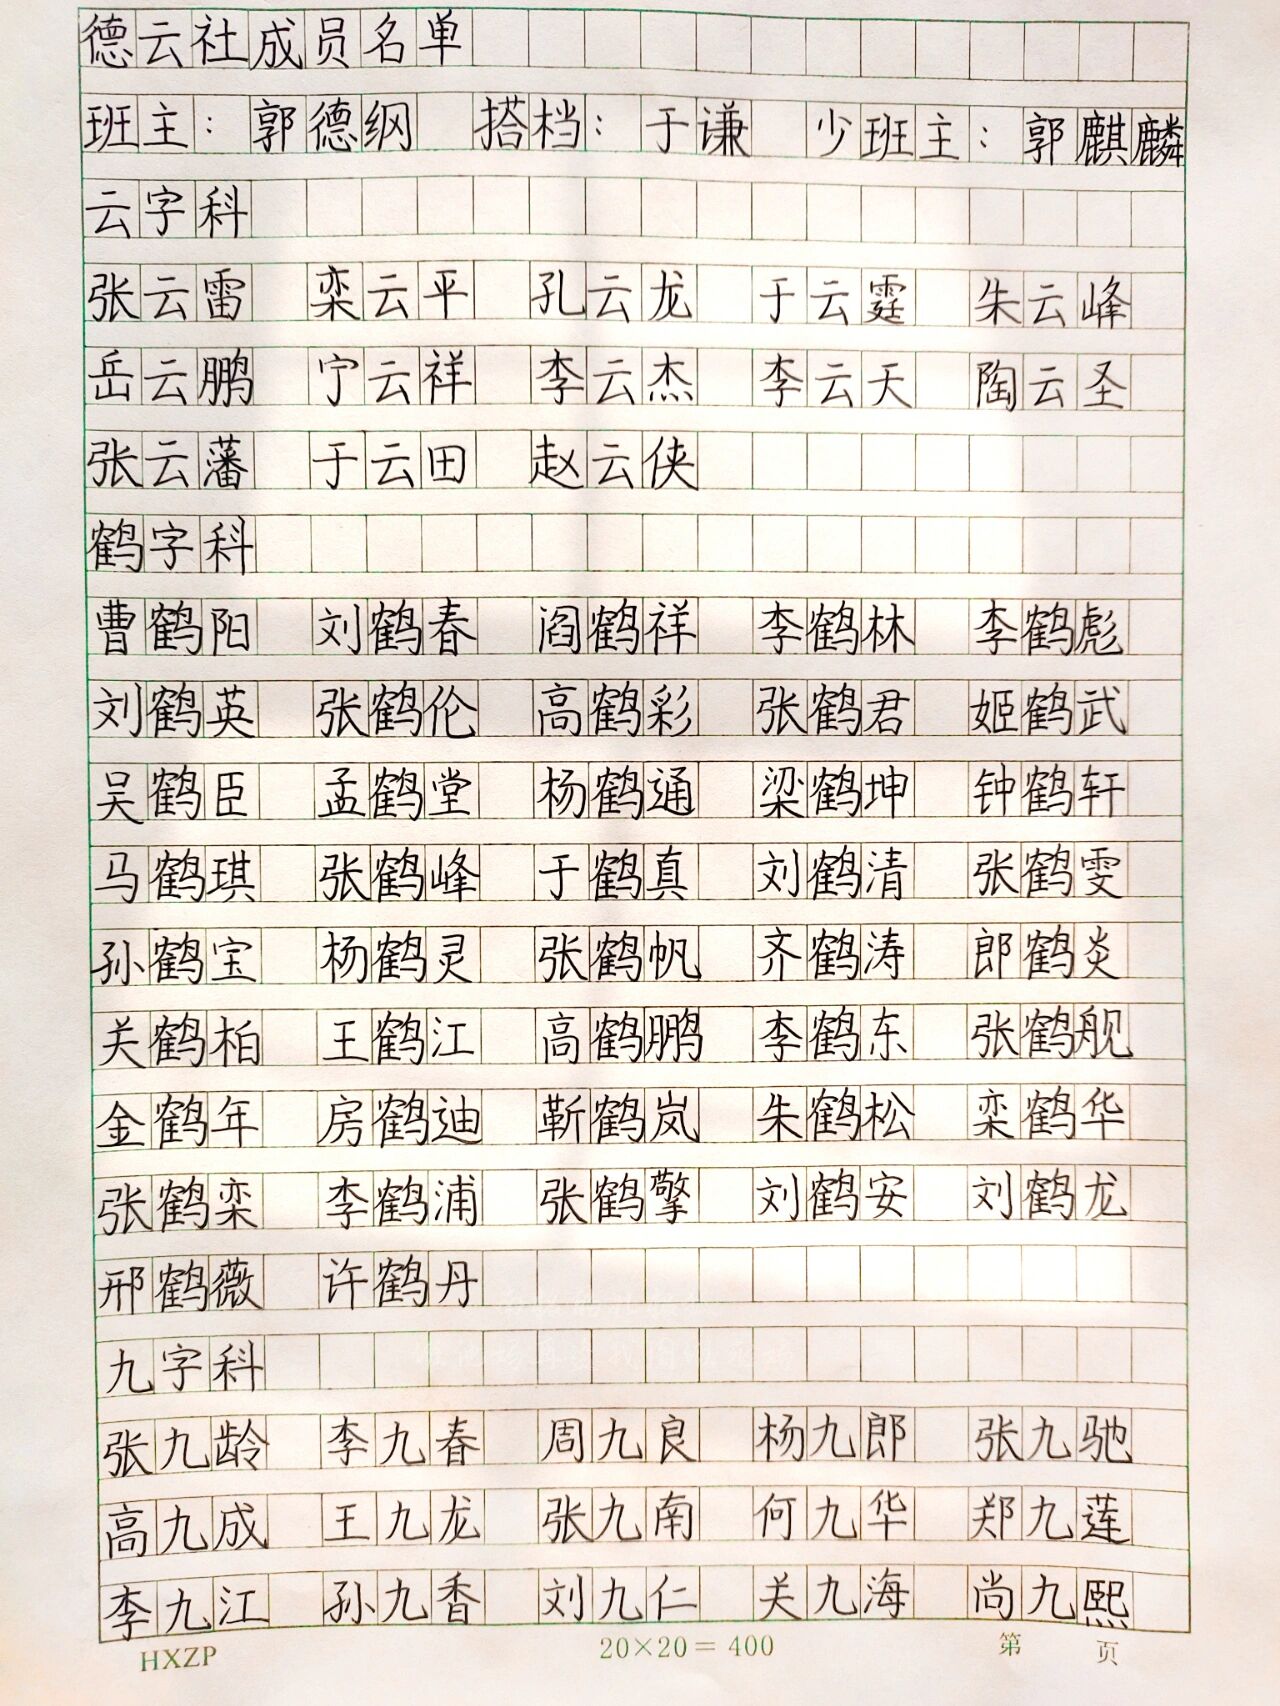 德云社成员名单
班主：郭德纲 搭档：于谦 少班主：郭麒麟
云字科
张云雷 栾云平 孔云龙 于云霆 朱云峰
岳云鹏 宁云祥 李云杰 李云天 陶云圣
张云藩 于云田 赵云侠
鹤字科
曹鹤阳 刘鹤春 阎鹤祥 李鹤林 李鹤彪
刘鹤英 张鹤伦 高鹤彩 张鹤君 姬鹤武
吴鹤臣 孟鹤堂 杨鹤通 梁鹤坤 钟鹤轩
马鹤琪 张鹤峰 于鹤真 刘鹤清 张鹤雯
孙鹤宝 杨鹤灵 张鹤帆 齐鹤涛 郎鹤炎
关鹤柏 王鹤江 高鹤鹏 李鹤东 张鹤舰
金鹤年 房鹤迪 靳鹤岚 朱鹤松 栾鹤华
张鹤栾 李鹤浦 张鹤擎 刘鹤安 刘鹤龙
邢鹤薇 许鹤丹
九字科
张九龄 李九春 周九良 杨九郎 张九驰
高九成 王九龙 张九南 何九华 郑九莲
李九江 孙九香 刘九仁 关九海 尚九熙
HXZP 20×20=400 第 页